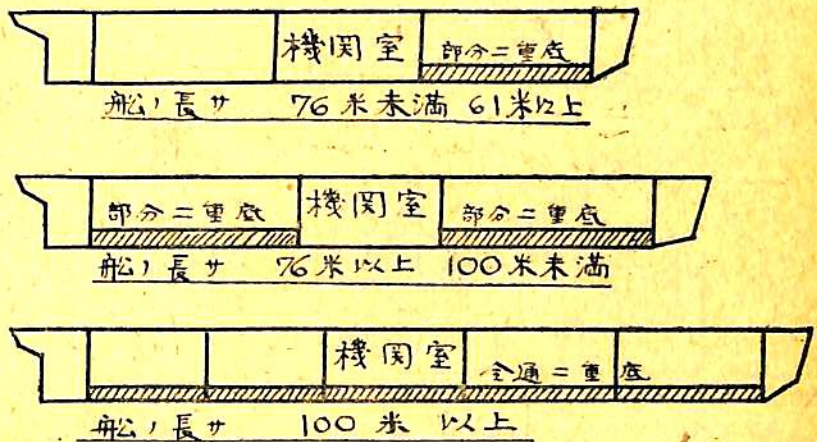 機関室 部分二重底
船ノ長サ 76米未満 61米以上
部分二重底 機関室 部分二重底
船ノ長サ 76米以上 100米未満
機関室 全通二重底
船ノ長サ 100米 以上